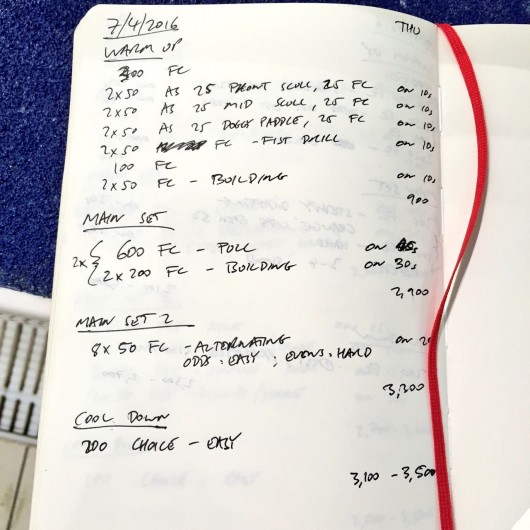 7/4/2016 THU
WARM UP
300 FC
2x50 AS 25 FRONT SCULL, 25 FC on 10s
2x50 AS 25 MID SCULL, 25 FC on 10s
2x50 AS 25 DOGGY PADDLE, 25 FC on 10s
2x50 FC - FIST DRILL on 10s
100 FC
2x50 FC - BUILDING on 10s
900
MAIN SET
2x { 600 FC - PULL on
2x200 FC - BUILDING on 30s
2,900
MAIN SET 2
8x50 FC - ALTERNATING on
ODDS: EASY; EVENS: HARD
3,300
COOL DOWN
200 CHOICE - EASY
3,100 - 3,500